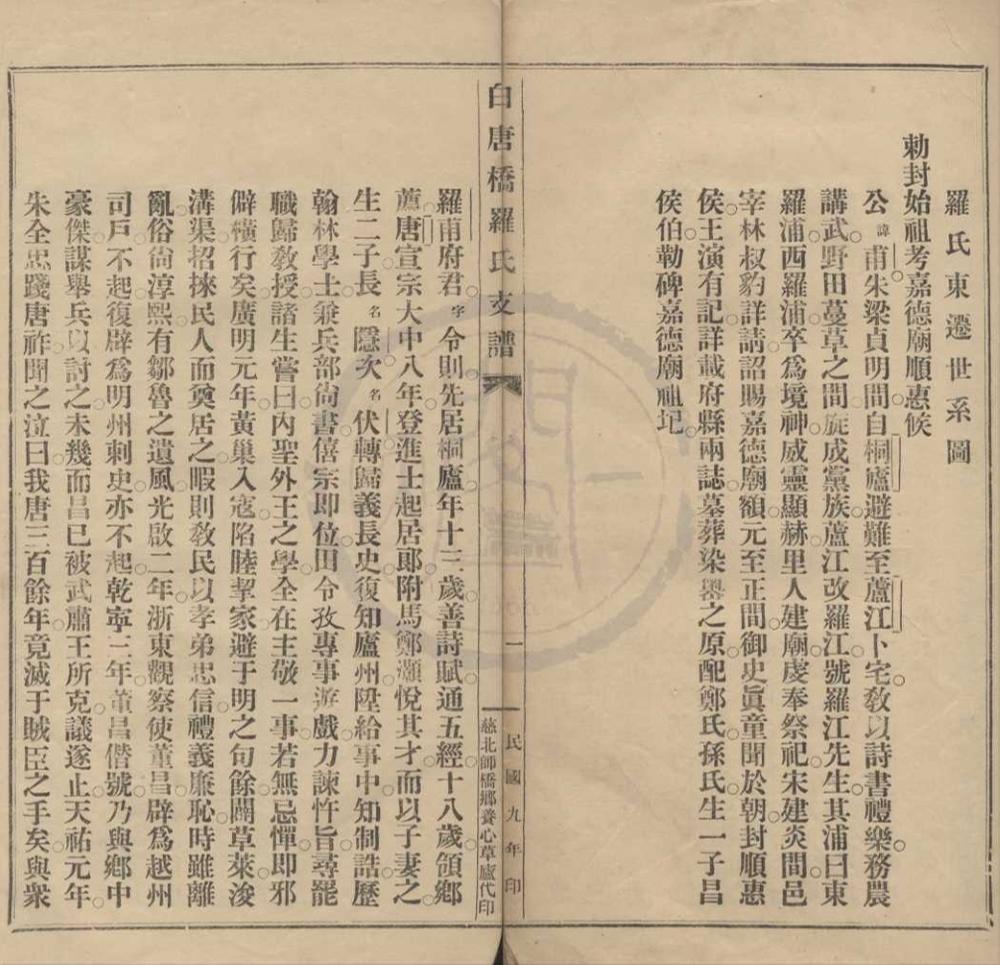 羅氏東遷世系圖
勅封始祖考嘉德廟順惠候
公諱甫朱梁貞明間自桐廬避難至蘆江卜宅教以詩書禮樂務農
講武野田蔓草之間旋成黨族蘆江改羅江號羅江先生其浦曰東
羅浦西羅浦卒為境神威靈顯赫里人建廟虔奉祭祀宋建炎間邑
宰林叔豹詳請詔賜嘉德廟額元至正間御史眞童聞於朝封順惠
侯王演有記詳載府縣兩誌墓葬染嶴之原配鄭氏孫氏生一子昌
侯伯勒碑嘉德廟祖圮
白唐橋羅氏支譜
一
民國九年印
慈北師橋鄉養心草廬代印
羅甫府君字令則先居桐廬年十三歲善詩賦通五經十八歲領鄉
薦唐宣宗大中八年登進士起居郞附馬鄭灝悅其才而以子妻之
生二子長名隱次名伏轉歸義長史復知廬州陞給事中知制誥歷
翰林學士兼兵部尙書僖宗即位田令孜專事遊戲力諫忤旨尋罷
職歸敎授諸生嘗曰內聖外王之學全在主敬一事若無忌憚即邪
僻橫行矣廣明元年黃巢入寇陷睦挈家避于明之句餘闢草萊浚
溝渠招徠民人而奠居之暇則敎民以孝弟忠信禮義廉恥時雖離
亂俗尙淳熙有鄒魯之遺風光啟二年浙東觀察使董昌辟為越州
司戶不起復辟為明州刺史亦不起乾寧二年董昌僭號乃與鄉中
豪傑謀舉兵以討之未幾而昌已被武肅王所克議遂止天祐元年
朱全忠踐唐祚聞之泣曰我唐三百餘年竟滅于賊臣之手矣與衆